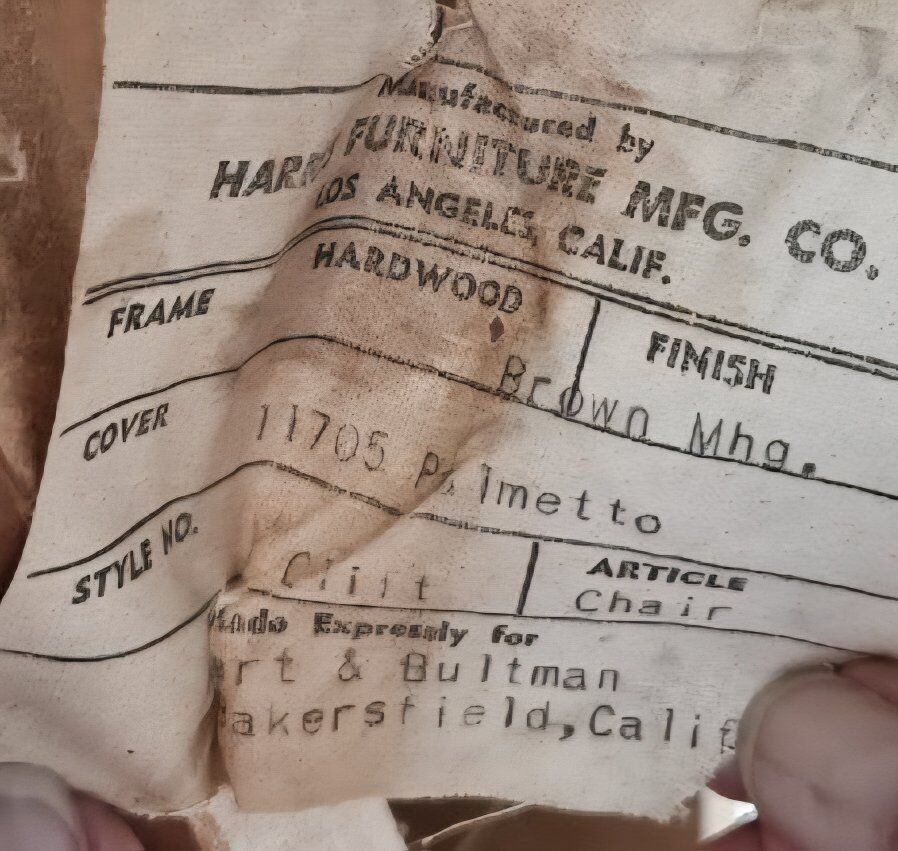 Manufactured by
FURNITURE MFG. CO.
LOS ANGELES, CALIF.
FRAME HARDWOOD FINISH
Brown Mhg.
COVER 11705 Palmetto
STYLE NO. ARTICLE
Chair
Made Expressly for
& Bultman
Bakersfield, Calif